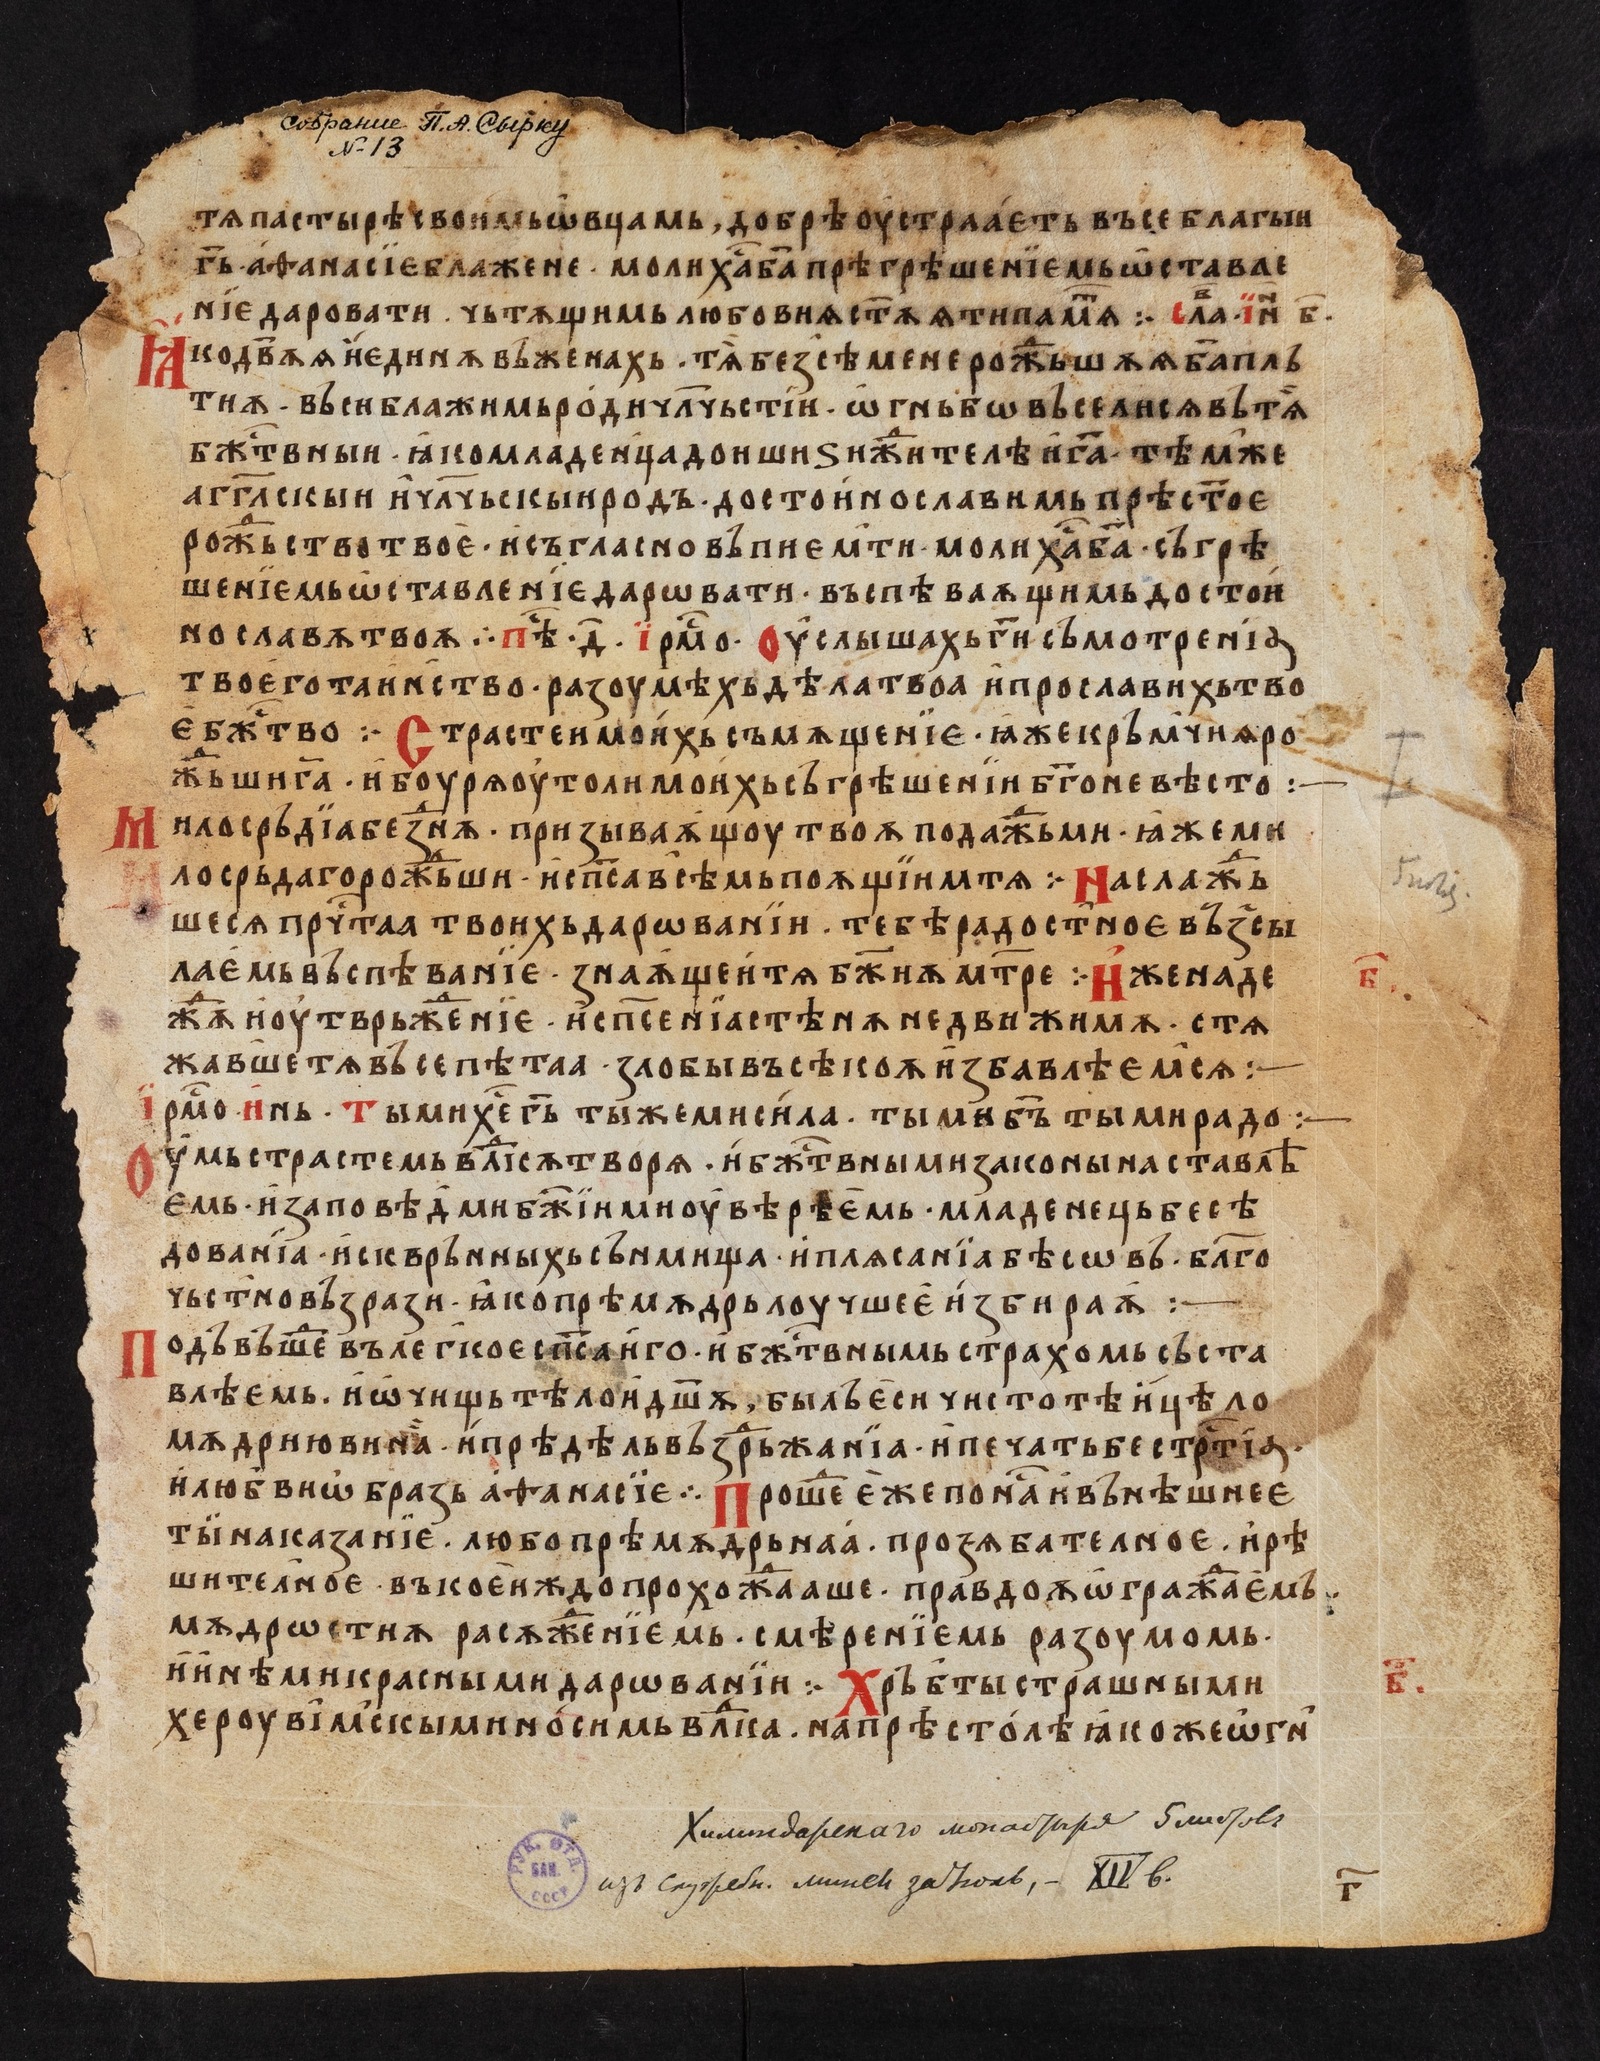 Собрание П. А. Сырку
№ 13
тѧ пастырѣ своимь ѡвцамь, добрѣ оустраꙗеть въсе благыи
гь҃. аѳанасїе блажене. моли ха҃ ба҃ прѣгрѣшенїемь ѡставле
нїе даровати. чьтѫщимь любовиѫ ст҃ѫѧ ти памⷮѧ :· слаⷡ. їнⷩ б҃.
Ꙗко дв҃ѫ ѧ единѫ въ женахь. тѧ без сѣмене рожⷣьшѫѧ ба҃ плъ
тиѫ. въси блажимь роди чл҃чьстїи. ѡгнь бѡ въсели сѧ въ тѧ
бжⷭ҇твныи. ꙗко младенца доиши ѕижⷣителѣ и га҃. тѣмже
агг҃лскыи и чл҃чьскыи родъ. достоино славимь прѣст҃ое
рожⷣьство твое. и съгласно въпиемти. моли ха҃ ба҃. съгрѣ
шенїемь ѡставленїе дарѡвати. въспѣваѫщимь достои
но славѫ твоѫ :· пѣⷭ. д҃. їрмⷭо. Оуслышахь гⷭ҇и съмотренїа
твоего таинство. разоумѣхь дѣла твоа и прославихь тво
е бжⷭ҇тво :· Страстеи моихь съмѫщенїе. ꙗже кръмчиѧ ро
жⷣьши га҃. и боурѫ оутоли моихь съгрѣшенїи бг҃оневѣсто :—
Милосръдїа безⷣнѫ. призываѫщоу твоѫ подажⷣь ми. ꙗже ми
лосрьдаго рожⷣьши. и сп҃са всѣмь поѫщїим тѧ :· Наслажⷣь
шесѧ прчⷭ҇таа твоихь дарѡванїи. тебѣ радостное възсы
лаемь въспѣванїе. знаѫще и тѧ бж҃иѫ мт҃ре :· Иже наде
б҃.
жⷣѫ и оутврьжⷣенїе. и сп҃сенїа стѣнѫ недвижимѫ. стѧ
жавше тѧ въсепѣтаа. злобы въсѣкоѫ избавлѣемсѧ :—
їрмⷭо инь. Ты ми хе҃ гь҃ ты же ми сила. ты ми бъ҃ ты ми радо :—
Оумь страстемь влⷣїсѧ творѧ. и бжⷭ҇твными законы наставлѣ
емь. и заповѣдми бж҃їими оувѣрѣемь. младенець бесѣ
дованїа. и скврънныхь сънмища. и плѧсанїа бѣсѡвъ. блг҃о
чьстно възрази. ꙗко прѣмѫдрь лоучшее избираѫ :—
Подъ въшеⷣ въ легкое сп҃са иго. и бжⷭ҇твнымь страхомь съста
влѣемь. и ѡчищь тѣло и дш҃ѫ, быль еси чистотѣ и цѣло
мѫдрию вина. и прѣдѣль въздрьжанїа. и печать бестрⷭтїа.
и любви ѡбразь аѳанасїе :· Прошеⷣ еже по на и вънѣшнее
ты наказанїе. любопрѣмѫдрьнаа. прозѧбателное. и рѣ
шителное. въкоеиждо прохожⷣааше. правдоѫ ѡгражⷣаемъ.
мѫдрѡстиѫ расѫжⷣенїемь. смѣренїемь разоумомь.
и инѣми красными дарѡванїи :· Хръб҃ты страшными
б҃.
хероувїмскыми носимь влⷣка. на прѣстолѣ ꙗкоже ѡгн
Хилиндарскаго монастыря
изъ служебн. минеи за Іюль, – XIV в.
г҃
РУК. ОТД.
БАН.
СССР